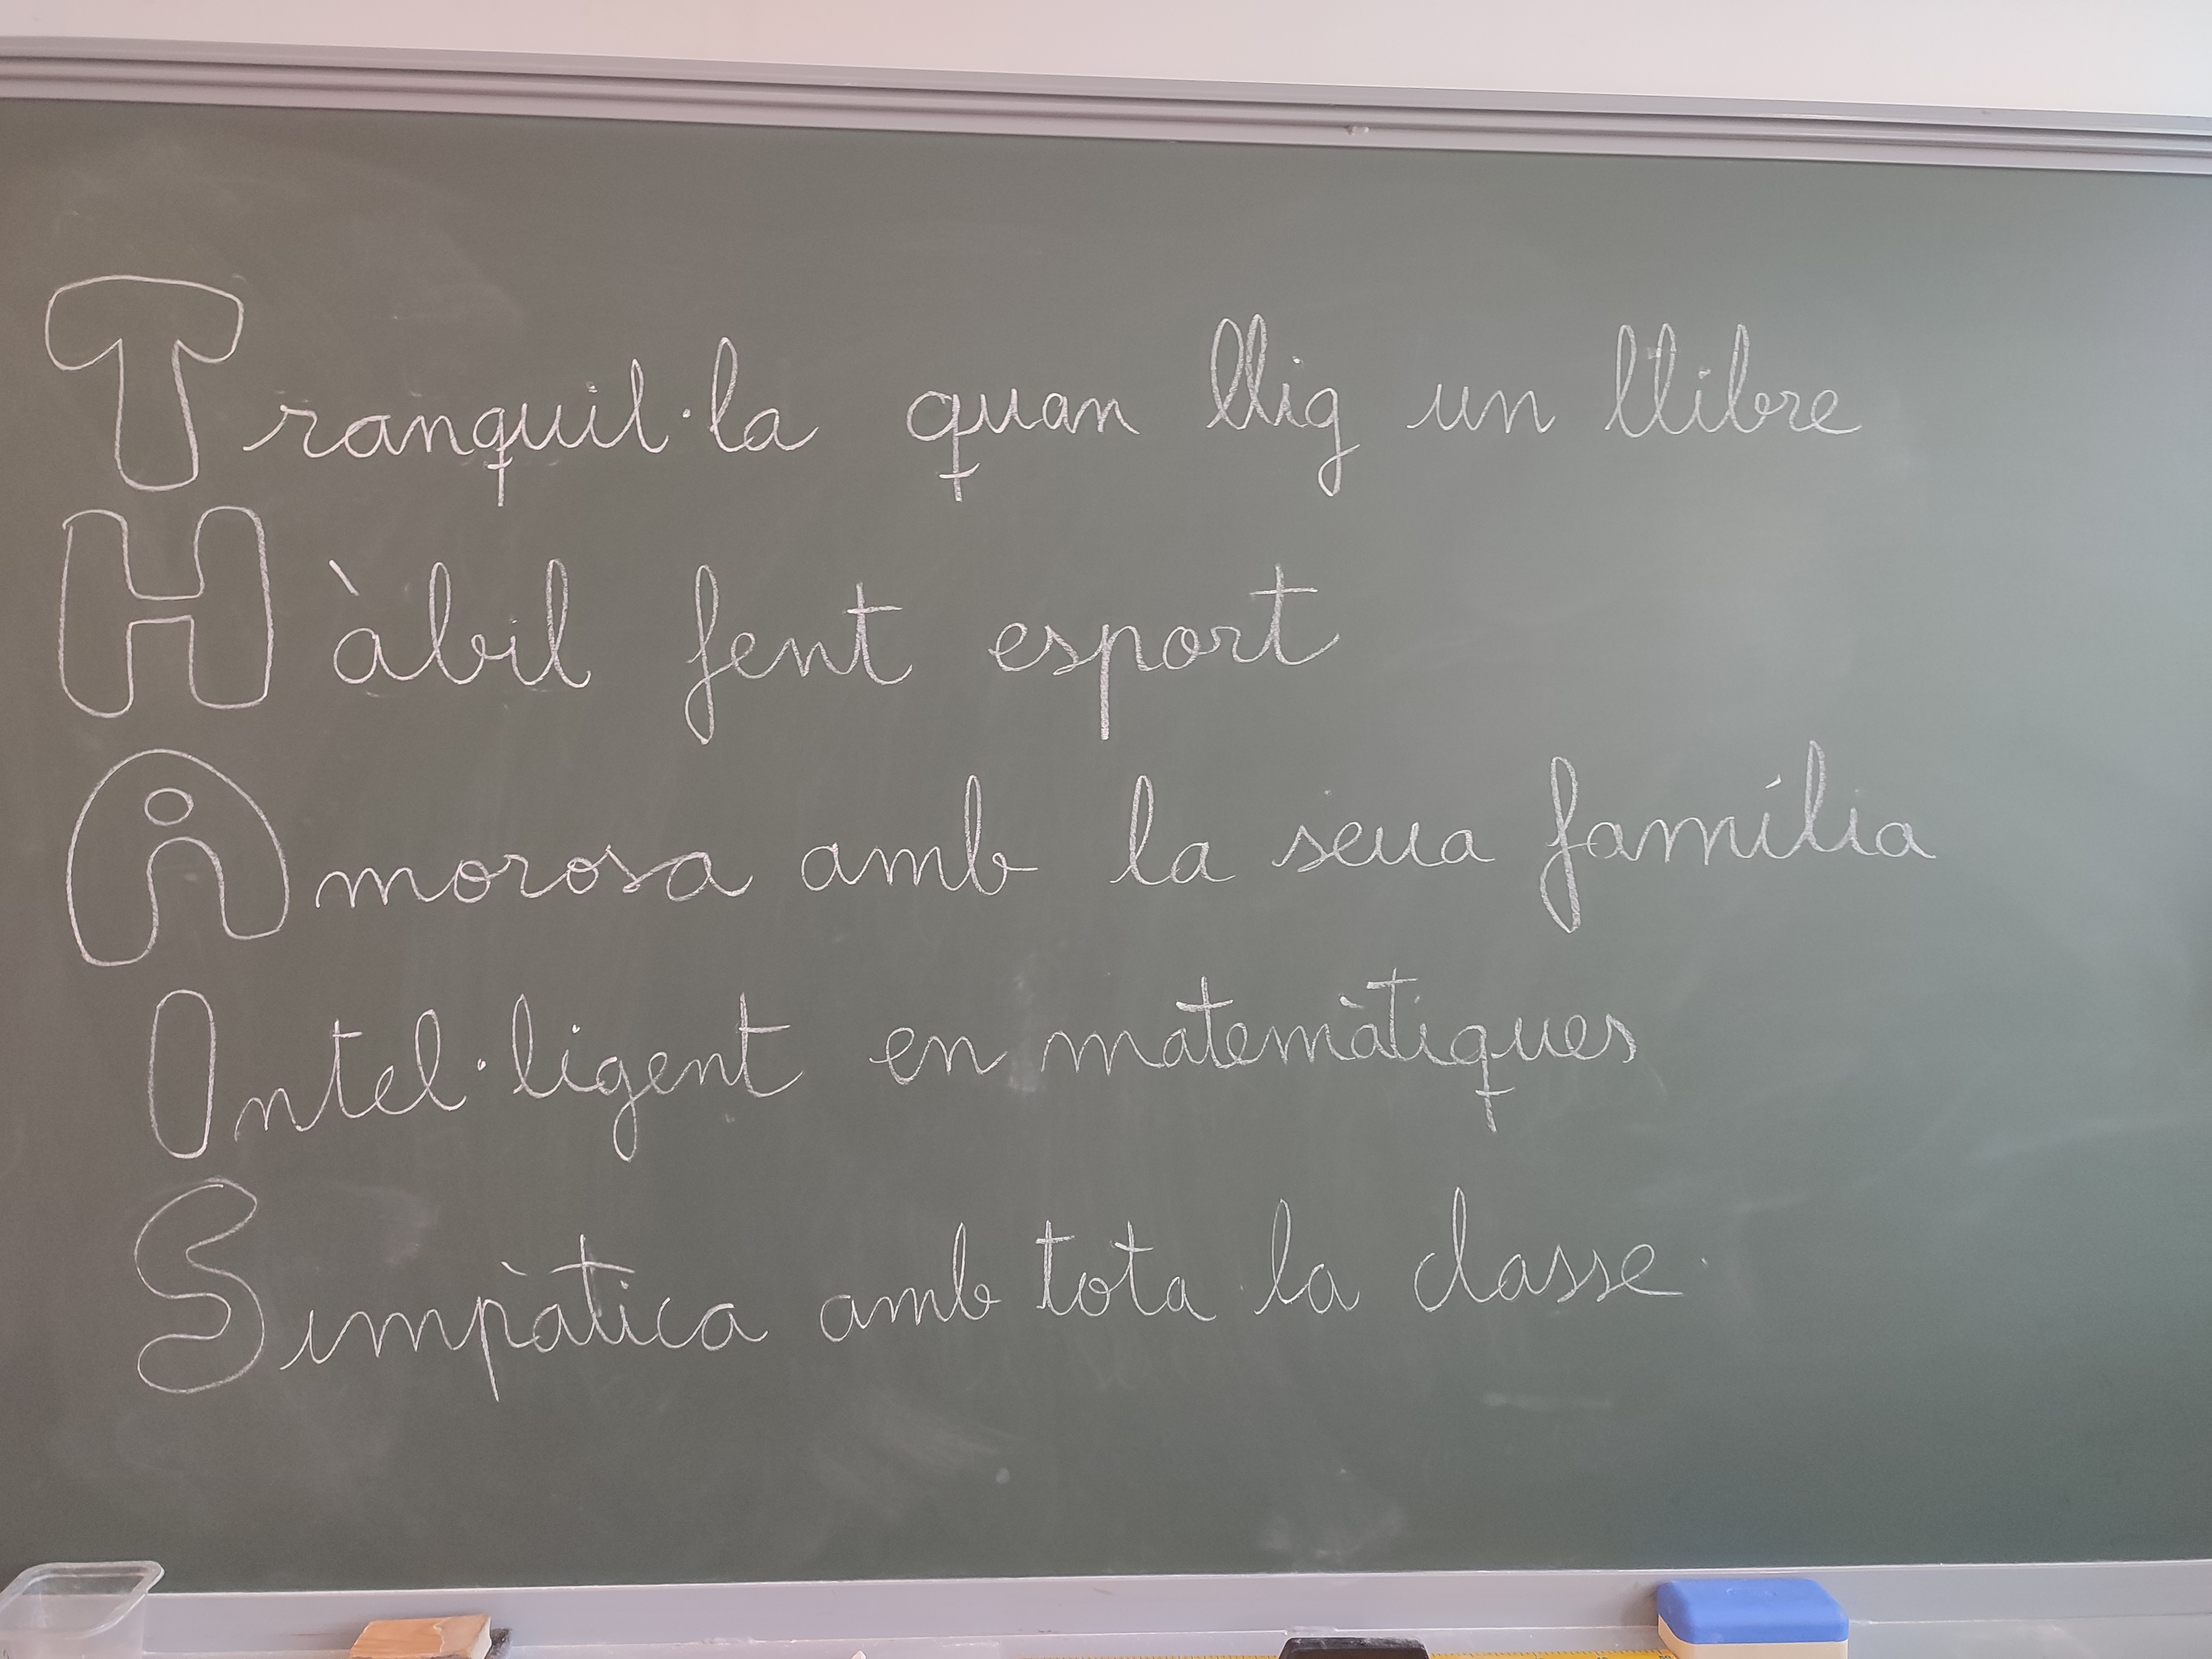 Tranquil·la quan llig un llibre
Hàbil fent esport
Amorosa amb la seua família
Intel·ligent en matemàtiques
Simpàtica amb tota la classe.